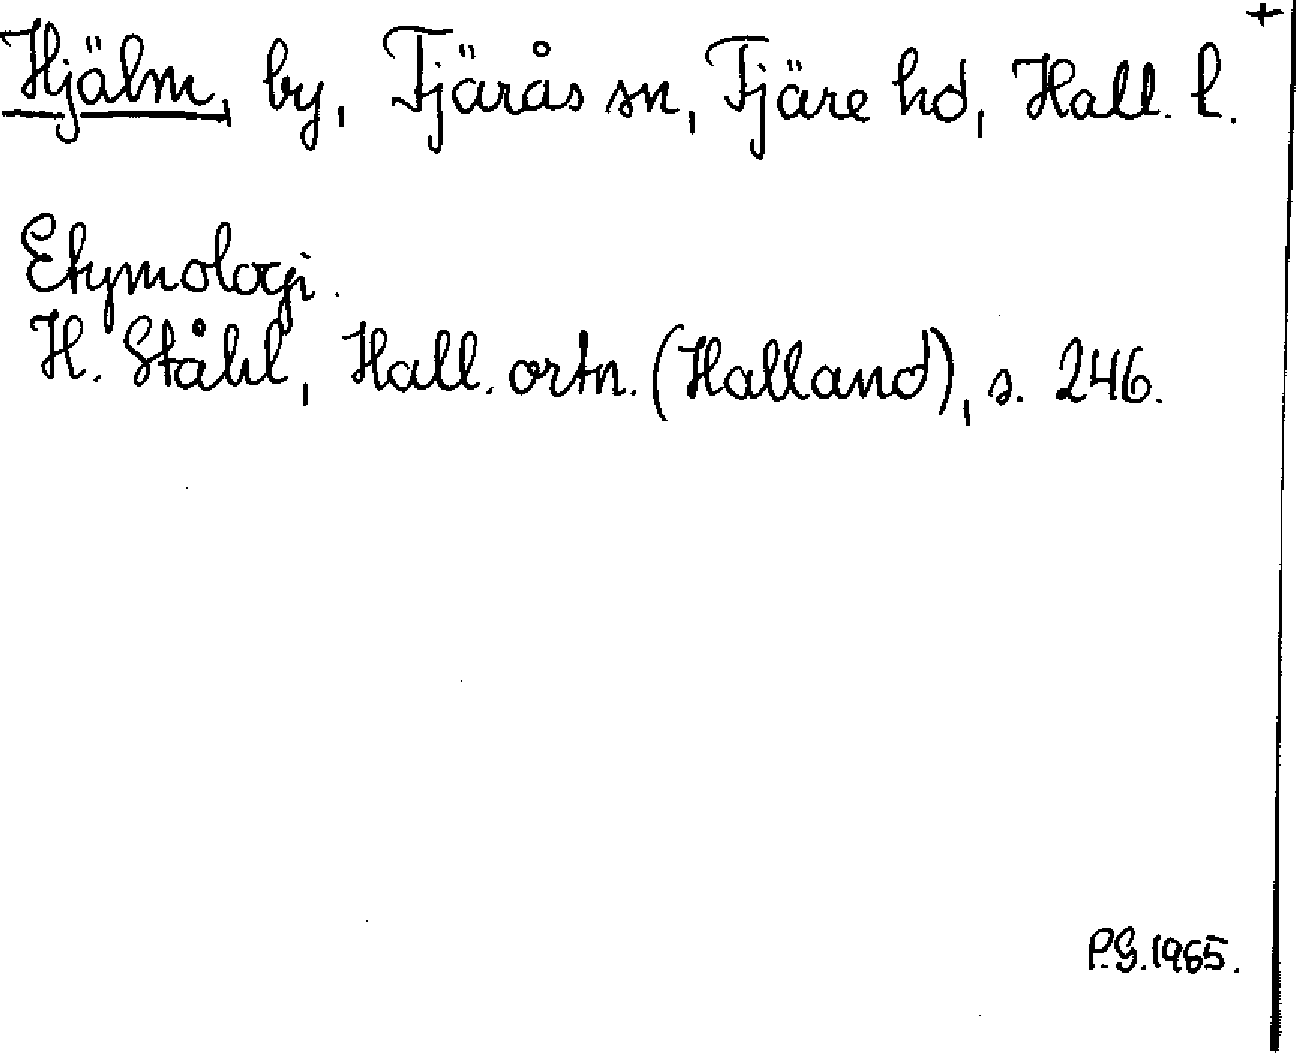 Hjälm, by, Fjärås sn, Fjäre hd, Hall. l. +
Etymologi.
H. Ståhl, Hall. ortn. (Halland), s. 246.
P.G. 1965.